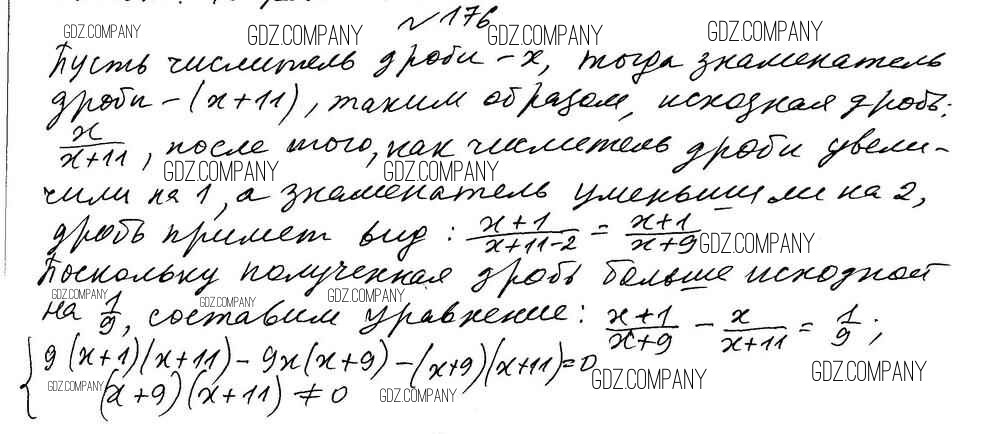 № 176
GDZ.COMPANY GDZ.COMPANY GDZ.COMPANY GDZ.COMPANY
Пусть числитель дроби - x, тогда знаменатель
дроби - (x+11), таким образом, исходная дробь:
x/(x+11), после того, как числитель дроби увели-
GDZ.COMPANY GDZ.COMPANY
чили на 1, а знаменатель уменьшили на 2,
дробь примет вид: (x+1)/(x+11-2) = (x+1)/(x+9) GDZ.COMPANY
Поскольку полученная дробь больше исходной
GDZ.COMPANY GDZ.COMPANY GDZ.COMPANY
на 1/9, составим уравнение: (x+1)/(x+9) - x/(x+11) = 1/9;
{ 9(x+1)(x+11) - 9x(x+9) - (x+9)(x+11)=0
GDZ.COMPANY GDZ.COMPANY
(x+9)(x+11) ≠ 0
GDZ.COMPANY GDZ.COMPANY